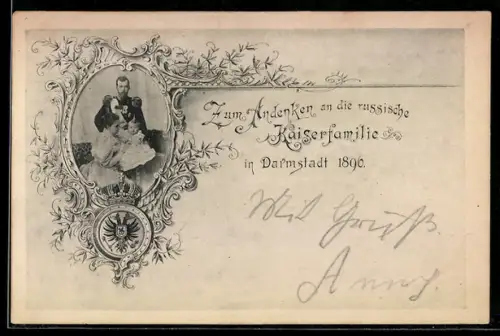 Zum Andenken an die russische
Kaiserfamilie
in Darmstadt 1896.
Mit Gruß.